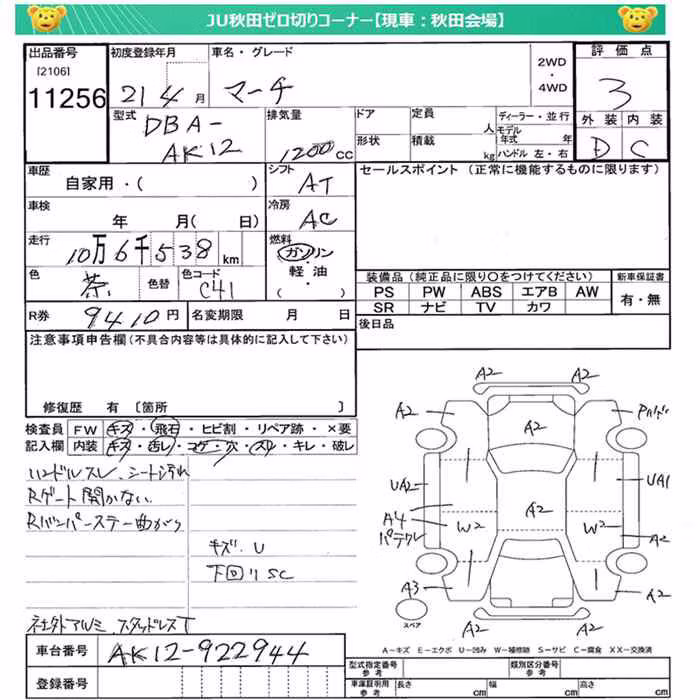 JU秋田ゼロ切りコーナー【現車：秋田会場】
出品番号 初度登録年月 車名・グレード 2WD・4WD 評価点
[2106]
11256 21 4月 マーチ 3
型式 DBA-AK12 排気量 1200cc ドア 定員 人 ディーラー・並行
形状 積載 kg モデル年式 年 ハンドル 左・右
外装 内装
D C
車歴 自家用・( ) シフト AT
セールスポイント（正常に機能するものに限ります）
車検 年 月( 日) 冷房 AC
走行 10万6千538km 燃料 ガソリン・軽油・( )
色 茶 色替 色コード C41
装備品（純正品に限り○をつけてください） 新車保証書
PS PW ABS エアB AW 有・無
SR ナビ TV カワ
R券 9410円 名変期限 月 日
後日品
注意事項申告欄（不具合内容等は具体的に記入して下さい）
修復歴 有 〔箇所 〕
検査員 FW キズ・飛石・ヒビ割・リペア跡・×要
記入欄 内装 キズ・汚レ・コゲ・穴・スレ・キレ・破レ
ハンドルスレ、シート汚れ
Rゲート開かない
Rバンパーステー曲がり
キズ、U
下回りSC
社外アルミ、スタッドレスT
A2 A2
A2 A2
UA2 UA1
A4 A2
W2 W2
A2
A3 A2
A2
スペア
A－キズ E－エクボ U－凹み W－補修跡 S－サビ C－腐食 XX－交換済
車台番号 AK12-922944
登録番号
型式指定番号 参考 類別区分番号 参考
車庫証明用 参考 長さ cm 幅 cm 高さ cm